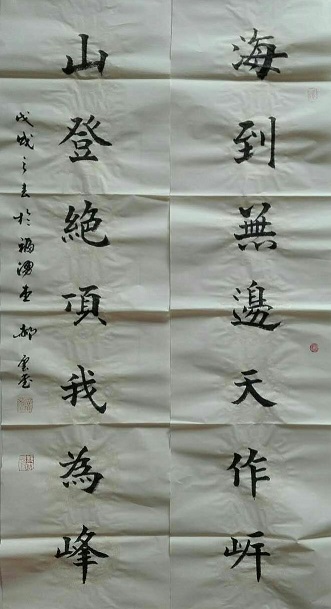 海到無邊天作岸
山登絕頂我為峰
戊戌之春於福堂郝